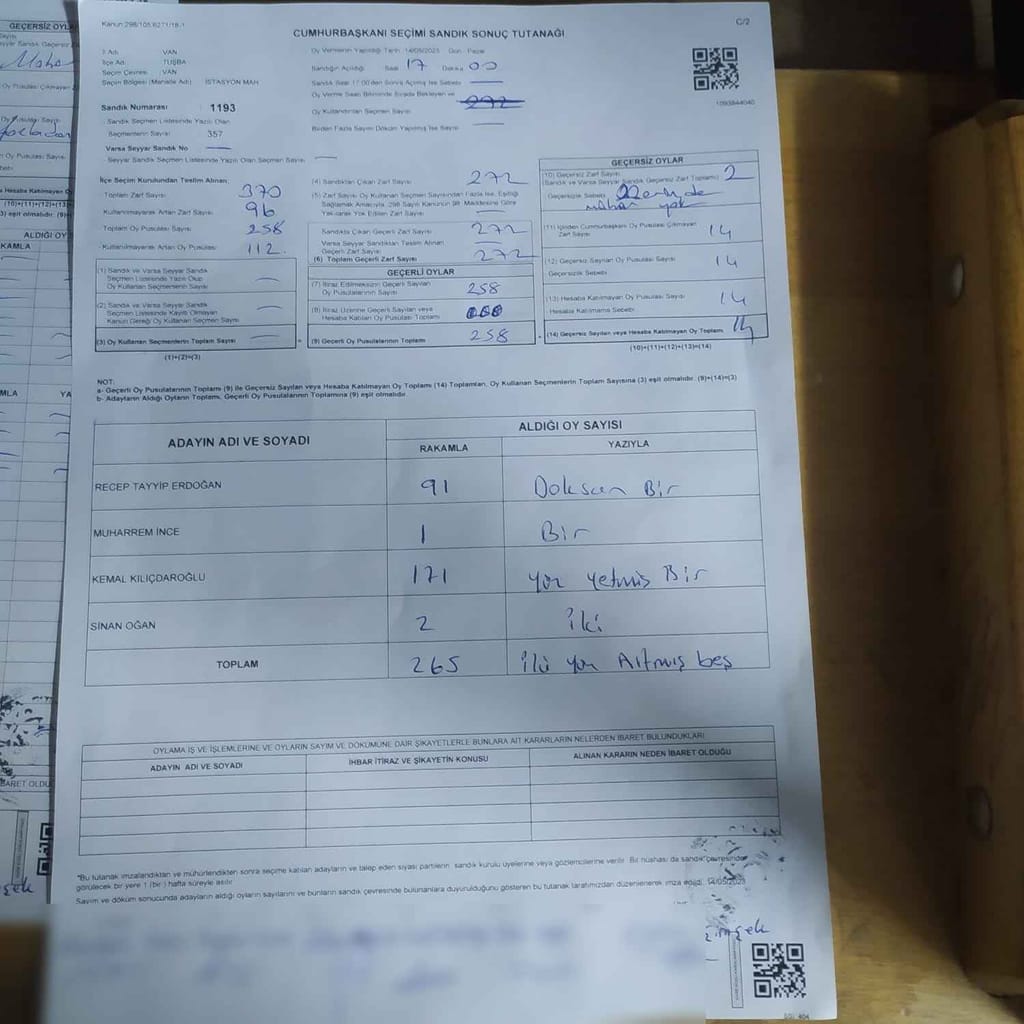 Kanun:298/105,6271/18-1
C/2
CUMHURBAŞKANI SEÇİMİ SANDIK SONUÇ TUTANAĞI
İl Adı VAN
İlçe Adı TUŞBA
Seçim Çevresi VAN
Seçim Bölgesi (Mahalle Adı) İSTASYON MAH
Sandık Numarası 1193
Sandık Seçmen Listesinde Yazılı Olan
Seçmenlerin Sayısı 357
Varsa Seyyar Sandık No —
Seyyar Sandık Seçmen Listesinde Yazılı Olan Seçmen Sayısı —
Oy Vermenin Yapıldığı Tarih 14/05/2023 Gün Pazar
Sandığın Açıldığı Saat 17 Dakika 00
Sandık Saat 17:00'den Sonra Açılmış İse Sebebi —
Oy Verme Saati Bitiminde Sırada Bekleyen ve
Oy Kullandırılan Seçmen Sayısı
Birden Fazla Sayım Döküm Yapılmış İse Sayısı —
İlçe Seçim Kurulundan Teslim Alınan;
Toplam Zarf Sayısı 370
Kullanılmayarak Artan Zarf Sayısı 96
Toplam Oy Pusulası Sayısı 258
Kullanılmayarak Artan Oy Pusulası 112.
(1) Sandık ve Varsa Seyyar Sandık
Seçmen Listesinde Yazılı Olup
Oy Kullanan Seçmenlerin Sayısı —
(2) Sandık ve Varsa Seyyar Sandık
Seçmen Listesinde Kayıtlı Olmayan
Kanun Gereği Oy Kullanan Seçmen Sayısı —
(3) Oy Kullanan Seçmenlerin Toplam Sayısı —
(1)+(2)=(3)
(4) Sandıktan Çıkan Zarf Sayısı 272
(5) Zarf Sayısı Oy Kullanan Seçmen Sayısından Fazla İse, Eşitliği
Sağlamak Amacıyla, 298 Sayılı Kanunun 98. Maddesine Göre
Yakılarak Yok Edilen Zarf Sayısı —
Sandıkta Çıkan Geçerli Zarf Sayısı 272
Varsa Seyyar Sandıktan Teslim Alınan
Geçerli Zarf Sayısı —
(6) Toplam Geçerli Zarf Sayısı 272
GEÇERLİ OYLAR
(7) İtiraz Edilmeksizin Geçerli Sayılan
Oy Pusulalarının Sayısı 258
(8) İtiraz Üzerine Geçerli Sayılan veya
Hesaba Katılan Oy Pusulası Toplamı
(9) Geçerli Oy Pusulalarının Toplamı 258
GEÇERSİZ OYLAR
(10) Geçersiz Zarf Sayısı
(Sandık ve Varsa Seyyar Sandık Geçersiz Zarf Toplamı) 2
Geçersizlik Sebebi
mühür yok
(11) İçinden Cumhurbaşkanı Oy Pusulası Çıkmayan
Zarf Sayısı 14
(12) Geçersiz Sayılan Oy Pusulası Sayısı 14
Geçersizlik Sebebi
(13) Hesaba Katılmayan Oy Pusulası Sayısı 14
Hesaba Katılmama Sebebi
(14) Geçersiz Sayılan veya Hesaba Katılmayan Oy Toplamı 14
(10)+(11)+(12)+(13)=(14)
NOT:
a- Geçerli Oy Pusulalarının Toplamı (9) ile Geçersiz Sayılan veya Hesaba Katılmayan Oy Toplamı (14) Toplamları, Oy Kullanan Seçmenlerin Toplam Sayısına (3) eşit olmalıdır. (9)+(14)=(3)
b- Adayların Aldığı Oyların Toplamı, Geçerli Oy Pusulalarının Toplamına (9) eşit olmalıdır.
ADAYIN ADI VE SOYADI ALDIĞI OY SAYISI
RAKAMLA YAZIYLA
RECEP TAYYİP ERDOĞAN 91 Doksan Bir
MUHARREM İNCE 1 Bir
KEMAL KILIÇDAROĞLU 171 yüz yetmiş Bir
SİNAN OĞAN 2 iki
TOPLAM 265 iki yüz Altmış beş
OYLAMA İŞ VE İŞLEMLERİNE VE OYLARIN SAYIM VE DÖKÜMÜNE DAİR ŞİKAYETLERLE BUNLARA AİT KARARLARIN NELERDEN İBARET BULUNDUKLARI
ADAYIN ADI VE SOYADI İHBAR İTİRAZ VE ŞİKAYETİN KONUSU ALINAN KARARIN NEDEN İBARET OLDUĞU
*Bu tutanak imzalandıktan ve mühürlendikten sonra seçime katılan adayların ve talep eden siyasi partilerin sandık kurulu üyelerine veya gözlemcilerine verilir. Bir nüshası da sandık çevresinde
görülecek bir yere 1 (bir) hafta süreyle asılır.
Sayım ve döküm sonucunda adayların aldığı oyların sayılarını ve bunların sandık çevresinde bulunanlara duyurulduğunu gösteren bu tutanak tarafımızdan düzenlenerek imza edildi. 14/05/2023